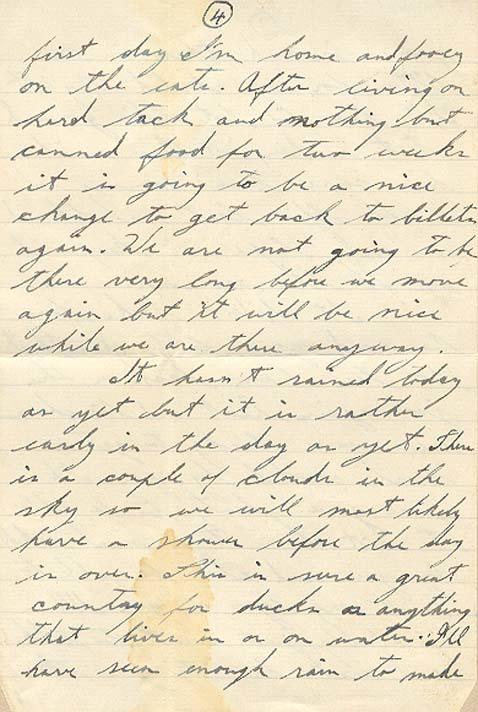 4
first day I'm home and
on the eats. After living on
hard tack and nothing but
canned food for two weeks
it is going to be a nice
change to get back to billets
again. We are not going to be
there very long before we move
again but it will be nice
while we are there anyway.
It hasn't rained today
as yet but it is rather
early in the day as yet. There
is a couple of clouds in the
sky so we will most likely
have a shower before the day
is over. This is sure a great
country for ducks or anything
that lives in or on water. I'll
have seen enough rain to made